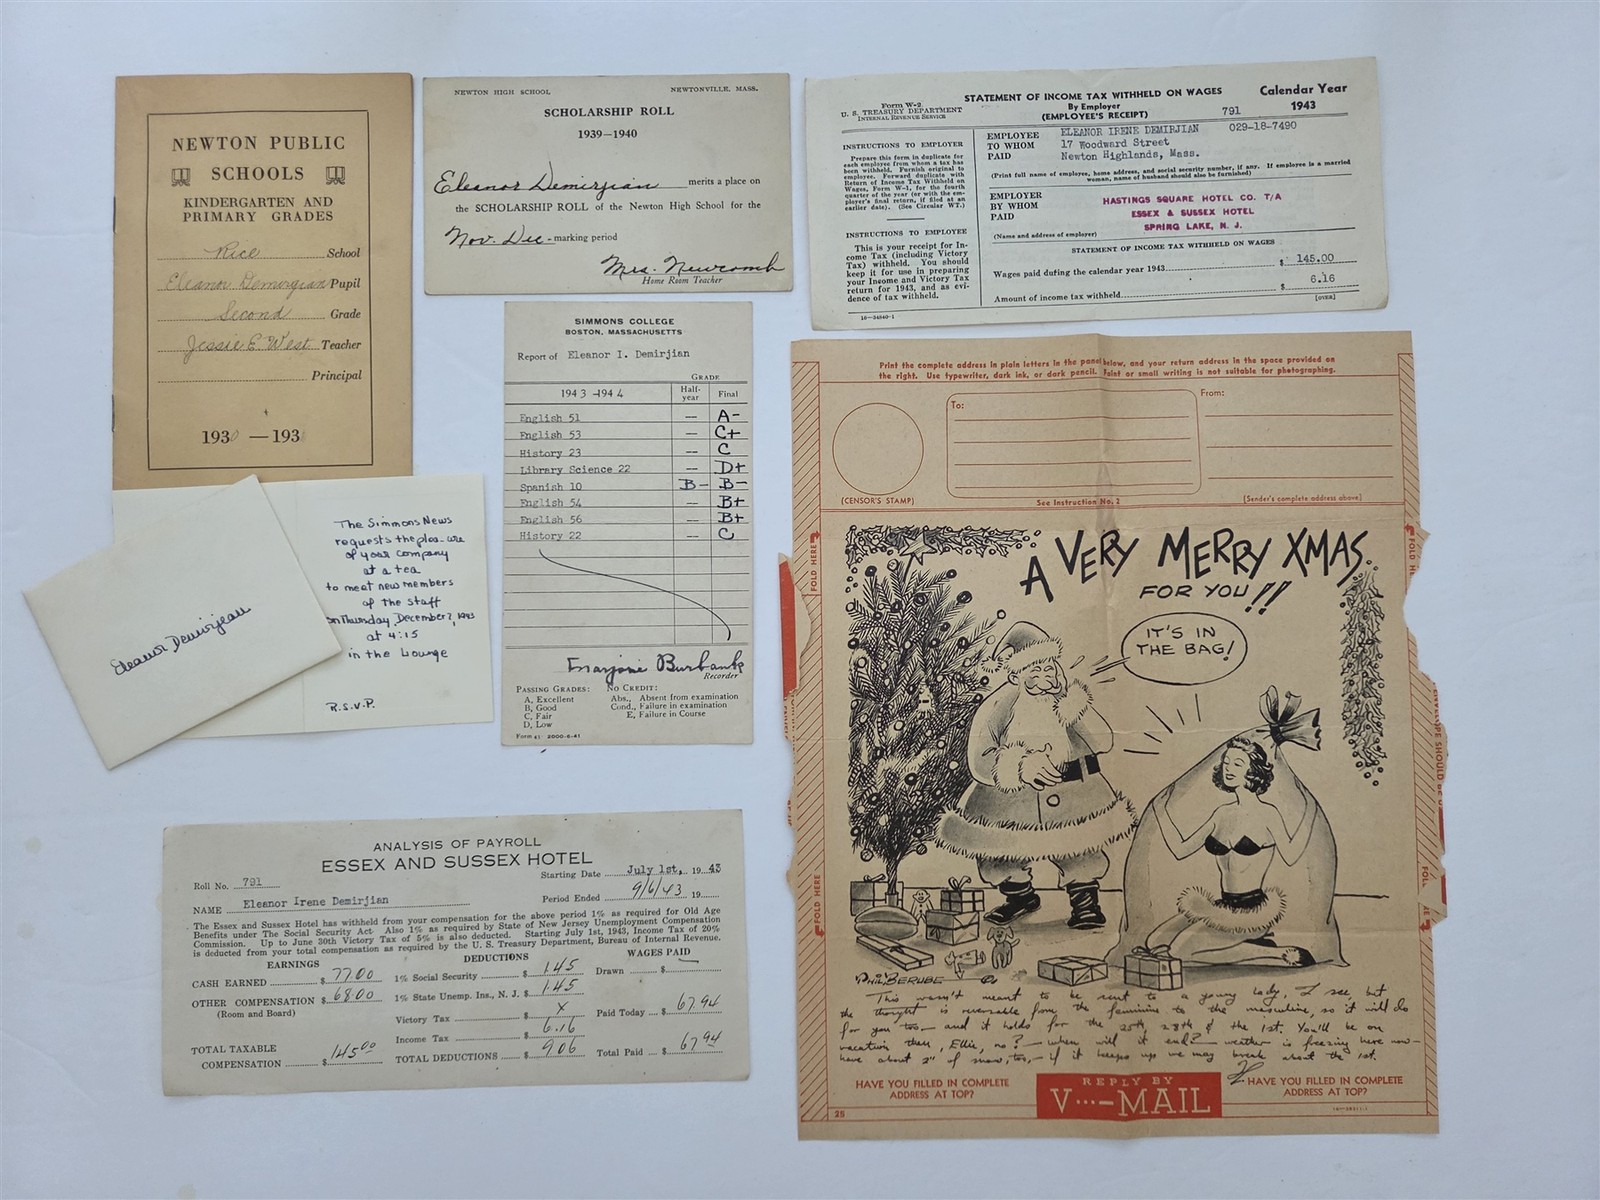 NEWTON PUBLIC
SCHOOLS
KINDERGARTEN AND
PRIMARY GRADES
Rice School
Eleanor Demirgian Pupil
Second Grade
Jessie E. West Teacher
Principal
1930 — 1931
NEWTON HIGH SCHOOL NEWTONVILLE, MASS.
SCHOLARSHIP ROLL
1939—1940
Eleanor Demirjian merits a place on
the SCHOLARSHIP ROLL of the Newton High School for the
Nov. Dec - marking period
Mrs. Newcomb
Home Room Teacher
Form W-2
U. S. TREASURY DEPARTMENT
INTERNAL REVENUE SERVICE
STATEMENT OF INCOME TAX WITHHELD ON WAGES
By Employer
(EMPLOYEE'S RECEIPT)
Calendar Year
1943
791
INSTRUCTIONS TO EMPLOYER
Prepare this form in duplicate for
each employee from whom a tax has
been withheld. Furnish original to
employee. Forward duplicate with
Return of Income Tax Withheld on
Wages, Form W-1, for the fourth
quarter of the year (or with the em-
ployer's final return, if filed at an
earlier date). (See Circular WT.)
INSTRUCTIONS TO EMPLOYEE
This is your receipt for In-
come Tax (including Victory
Tax) withheld. You should
keep it for use in preparing
your Income and Victory Tax
return for 1943, and as evi-
dence of tax withheld.
16—34840-1
EMPLOYEE
TO WHOM
PAID
ELEANOR IRENE DEMIRJIAN 029-18-7490
17 Woodward Street
Newton Highlands, Mass.
(Print full name of employee, home address, and social security number, if any. If employee is a married
woman, name of husband should also be furnished)
EMPLOYER
BY WHOM
PAID
HASTINGS SQUARE HOTEL CO. T/A
ESSEX & SUSSEX HOTEL
SPRING LAKE, N. J.
(Name and address of employer)
STATEMENT OF INCOME TAX WITHHELD ON WAGES
Wages paid during the calendar year 1943 $ 145.00
Amount of income tax withheld $ 6.16
[OVER]
SIMMONS COLLEGE
BOSTON, MASSACHUSETTS
Report of Eleanor I. Demirjian
GRADE
1943 -1944 Half-year Final
English 51 — A-
English 53 — C+
History 23 — C
Library Science 22 — D+
Spanish 10 B- B-
English 54 — B+
English 56 — B+
History 22 — C
Marjorie Burbank
Recorder
PASSING GRADES: NO CREDIT:
A, Excellent Abs., Absent from examination
B, Good Cond., Failure in examination
C, Fair E, Failure in Course
D, Low
Form 41 2000-6-41
Eleanor Demirjian
The Simmons News
requests the pleasure
of your company
at a tea
to meet new members
of the staff
on Thursday, December 2, 1943
at 4:15
in the Lounge
R.S.V.P.
ANALYSIS OF PAYROLL
ESSEX AND SUSSEX HOTEL
Roll No. 791
Starting Date July 1st, 1943
Period Ended 9/6/43 19
NAME Eleanor Irene Demirjian
The Essex and Sussex Hotel has withheld from your compensation for the above period 1% as required for Old Age
Benefits under The Social Security Act. Also 1% as required by State of New Jersey Unemployment Compensation
Commission. Up to June 30th Victory Tax of 5% is also deducted. Starting July 1st, 1943, Income Tax of 20%
is deducted from your total compensation as required by the U. S. Treasury Department, Bureau of Internal Revenue.
EARNINGS DEDUCTIONS WAGES PAID
CASH EARNED $ 77.00 1% Social Security $ 1.45 Drawn $ —
OTHER COMPENSATION $ 68.00 1% State Unemp. Ins., N. J. $ 1.45
(Room and Board) Victory Tax $ x Paid Today $ 67.94
Income Tax $ 6.16
TOTAL TAXABLE
COMPENSATION $ 145.00 TOTAL DEDUCTIONS $ 9.06 Total Paid $ 67.94
Print the complete address in plain letters in the panel below, and your return address in the space provided on
the right. Use typewriter, dark ink, or dark pencil. Faint or small writing is not suitable for photographing.
To:
From:
(CENSOR'S STAMP)
See Instruction No. 2
(Sender's complete address above)
FOLD HERE
FOLD HERE
A VERY MERRY XMAS
FOR YOU!!
IT'S IN
THE BAG!
PHIL BERUBE
This wasn't meant to be sent to a young lady, I see, but
the thought is reversable from the feminine to the masculine, so it will do
for you too— and it holds for the 25th, 28th & the 1st. You'll be on
vacation then, Ellie, no? — when will it end? — weather is freezing here now—
have about 2" of snow, too,— if it keeps up we may break about the 1st.
HAVE YOU FILLED IN COMPLETE
ADDRESS AT TOP?
REPLY BY
V···—MAIL
HAVE YOU FILLED IN COMPLETE
ADDRESS AT TOP?
25